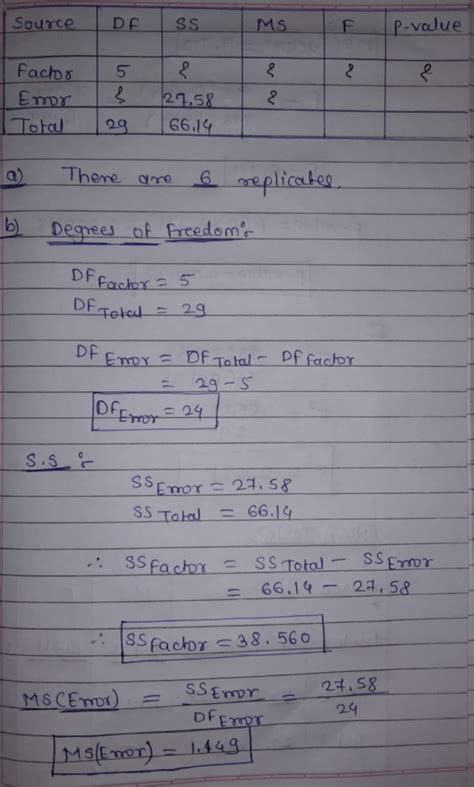 Source DF SS MS F P-value
Factor 5 ? ? ? ?
Error ? 27.58 ?
Total 29 66.14
a) There are 6 replicates.
b) Degrees of freedom:-
DF Factor = 5
DF Total = 29
DF Error = DF Total - DF factor
= 29-5
DF Error = 24
S.S :-
SS Error = 27.58
SS Total = 66.14
∴ SS Factor = SS Total - SS Error
= 66.14 - 27.58
∴ SS Factor = 38.560
MS(Error) = SS Error / DF Error = 27.58 / 24
MS(Error) = 1.149